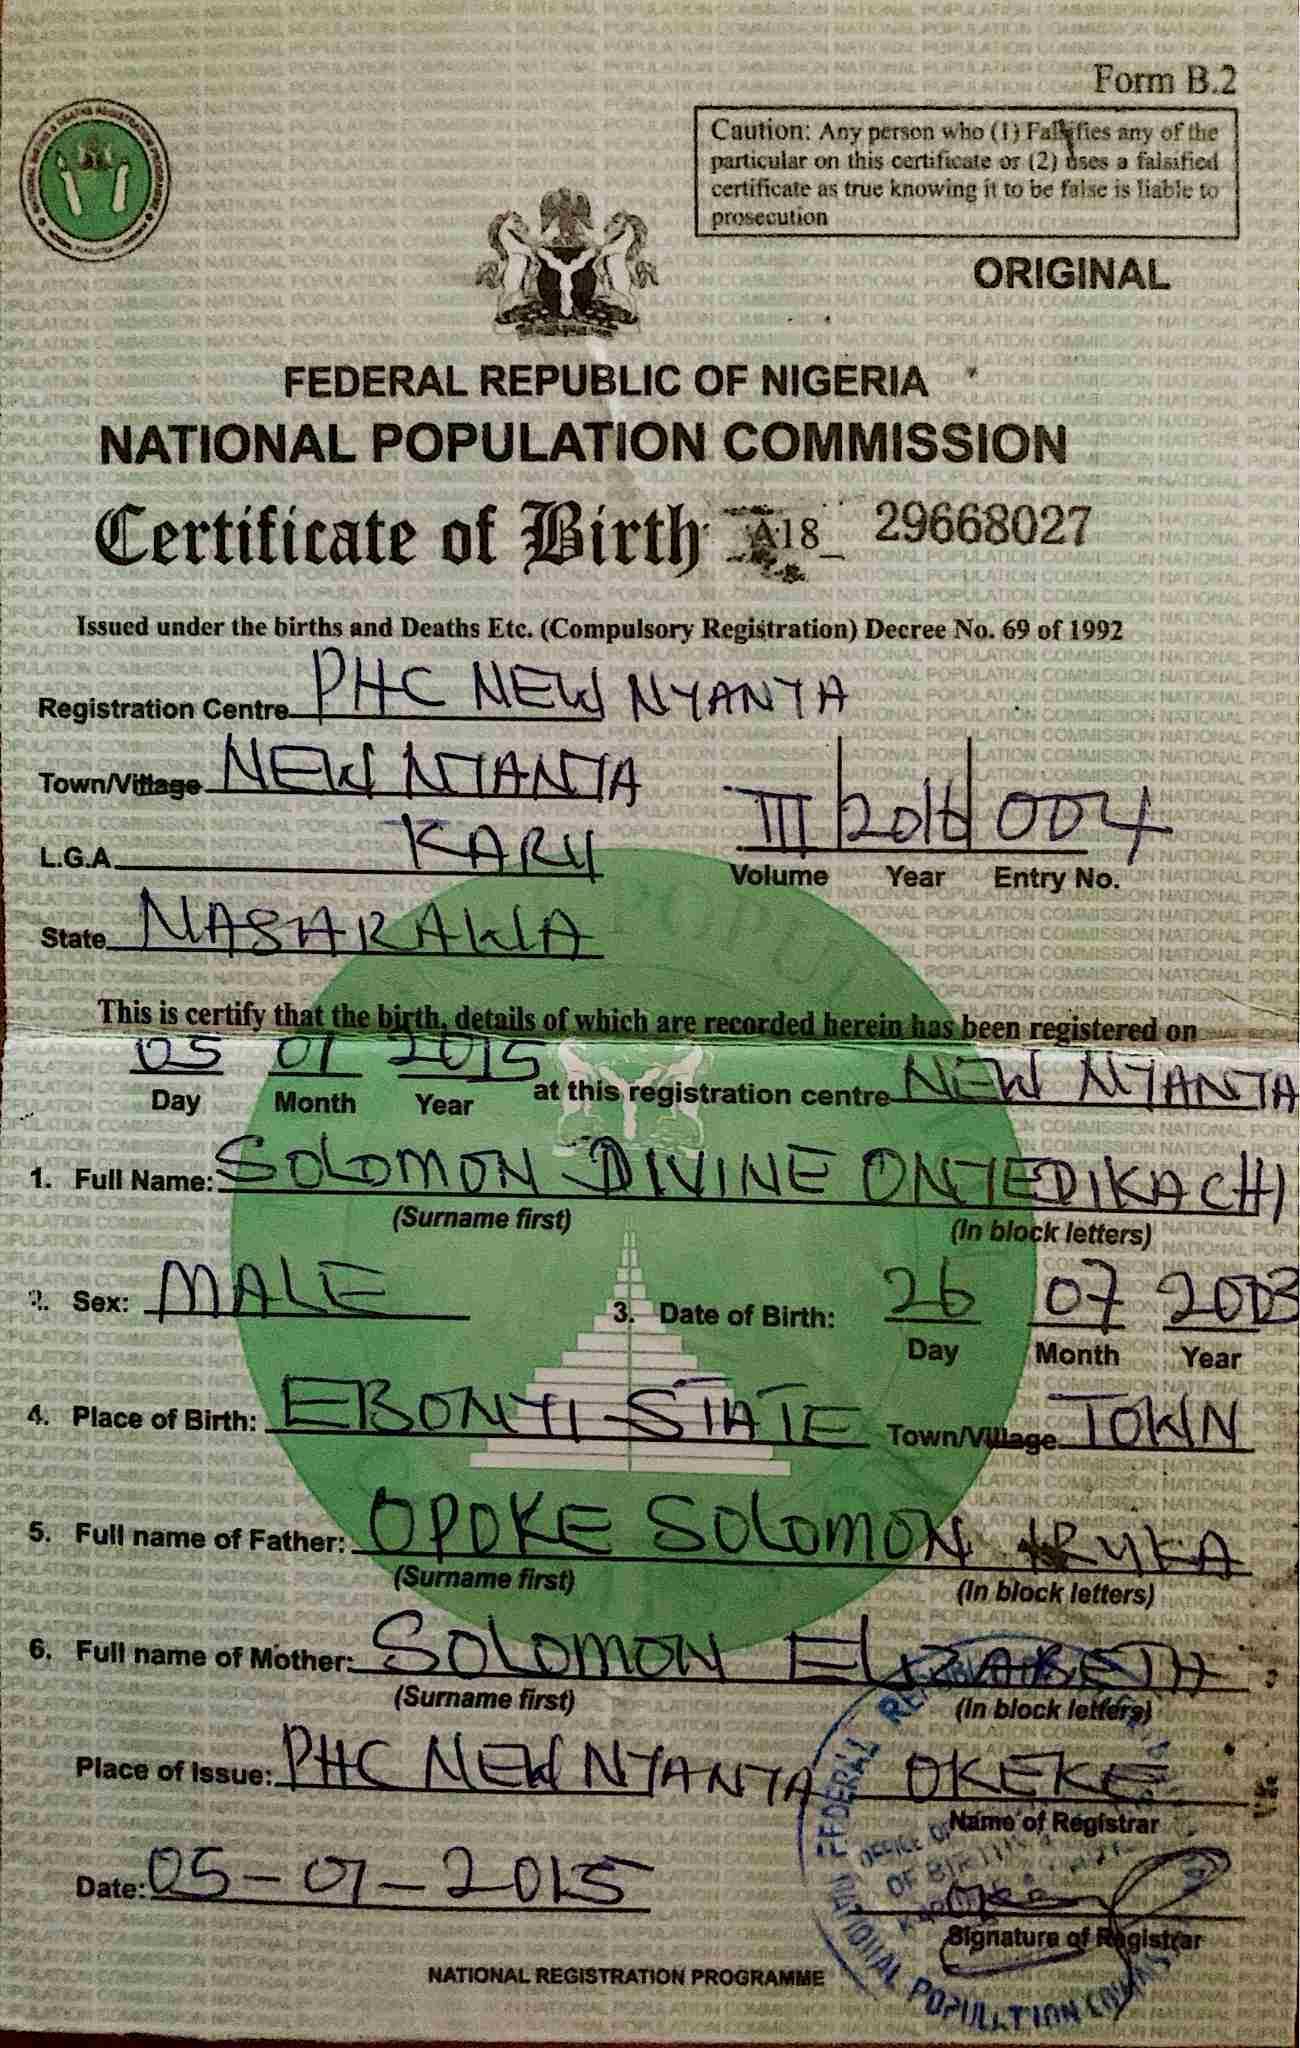 Form B.2
Caution: Any person who (1) Falsifies any of the
particular on this certificate or (2) uses a falsified
certificate as true knowing it to be false is liable to
prosecution
ORIGINAL
FEDERAL REPUBLIC OF NIGERIA
NATIONAL POPULATION COMMISSION
Certificate of Birth A18 29668027
Issued under the births and Deaths Etc. (Compulsory Registration) Decree No. 69 of 1992
Registration Centre PHC NEW NYANYA
Town/Village NEW NYANYA
L.G.A KARU
III 2016 004
Volume Year Entry No.
State NASARAWA
This is certify that the birth, details of which are recorded herein has been registered on
05 01 2015 at this registration centre NEW NYANYA
Day Month Year
1. Full Name: SOLOMON DIVINE ONYEDIKACHI
(Surname first) (In block letters)
2. Sex: MALE 3. Date of Birth: 26 07 2003
Day Month Year
4. Place of Birth: EBONYI STATE Town/Village TOWN
5. Full name of Father: OPOKE SOLOMON
(Surname first) (In block letters)
6. Full name of Mother: SOLOMON ELIZABETH
(Surname first) (In block letters)
Place of Issue: PHC NEW NYANYA OKEKE
Name of Registrar
Date: 05-01-2015
Signature of Registrar
NATIONAL REGISTRATION PROGRAMME
FEDERAL
NATIONAL POPULATION